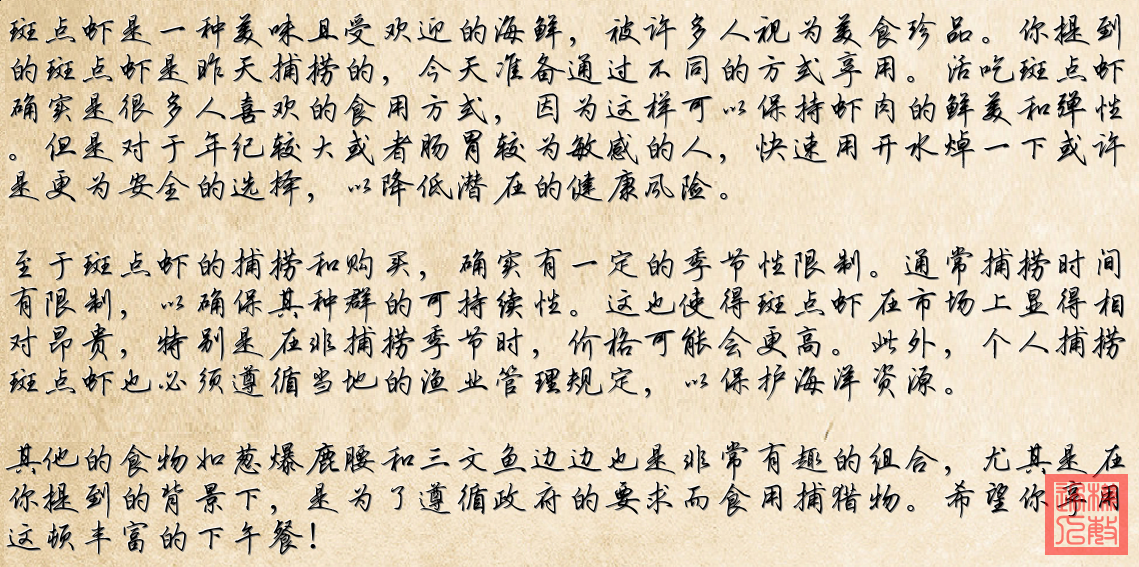 斑点虾是一种美味且受欢迎的海鲜，被许多人视为美食珍品。你提到
的斑点虾是昨天捕捞的，今天准备通过不同的方式享用。活吃斑点虾
确实是很多人喜欢的食用方式，因为这样可以保持虾肉的鲜美和弹性
。但是对于年纪较大或者肠胃较为敏感的人，快速用开水焯一下或许
是更为安全的选择，以降低潜在的健康风险。
至于斑点虾的捕捞和购买，确实有一定的季节性限制。通常捕捞时间
有限制，以确保其种群的可持续性。这也使得斑点虾在市场上显得相
对昂贵，特别是在非捕捞季节时，价格可能会更高。此外，个人捕捞
斑点虾也必须遵循当地的渔业管理规定，以保护海洋资源。
其他的食物如葱爆鹿腰和三文鱼边边也是非常有趣的组合，尤其是在
你提到的背景下，是为了遵循政府的要求而食用捕猎物。希望你享用
这顿丰富的下午餐！